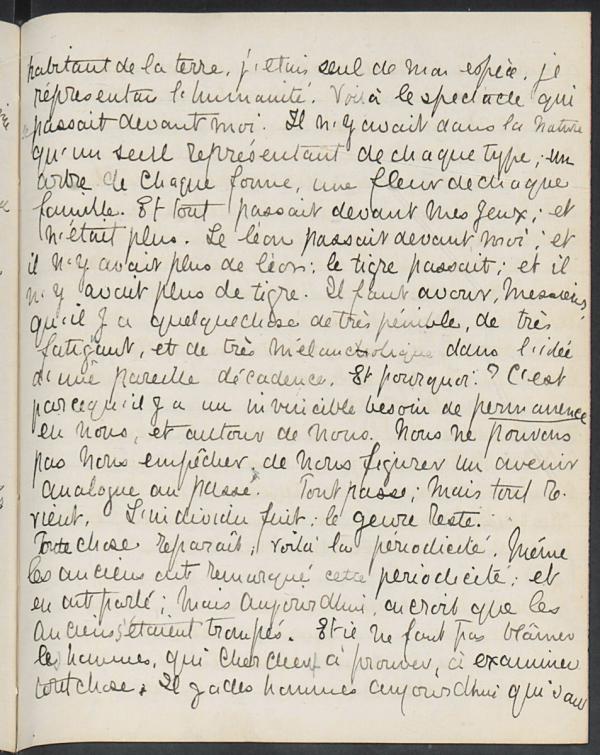 habitant de la terre, j'étais seul de mon espèce, je
réprésentais l'humanité. Voilà le spectacle qui
passait devant moi. Il n'y avait dans la nature
qu'un seul représentant de chaque type; un
arbre de chaque forme, une fleur de chaque
famille. Et tout passait devant mes yeux; et
n'était plus. Le léon passait devant moi; et
il n'y avait plus de léon: le tigre passait; et il
n'y avait plus de tigre. Il faut avouer, Messieurs,
qu'il y a quelquechose de très pénible, de très
fatigant, et de très mélancholique dans l'idée
d'une pareille décadence. Et pourquoi? C'est
parcequ'il y a un invincible besoin de permanence
en nous, et autour de nous. Nous ne pouvons
pas nous empêcher de nous figurer un avenir
analogue au passé. Tout passe; mais tout re-
vient. L'individu fuit: le genre reste.
Toute chose reparaît; voilà la périodicité. Même
les anciens ont remarqué cette periodicité; et
en ont parlé; mais aujourdhui, on croit que les
anciens s'étaient trompés. Et il ne faut pas blâmer
les hommes, qui cherchent à prouver, à examiner
tout chose. Il y a des hommes aujourdhui qui